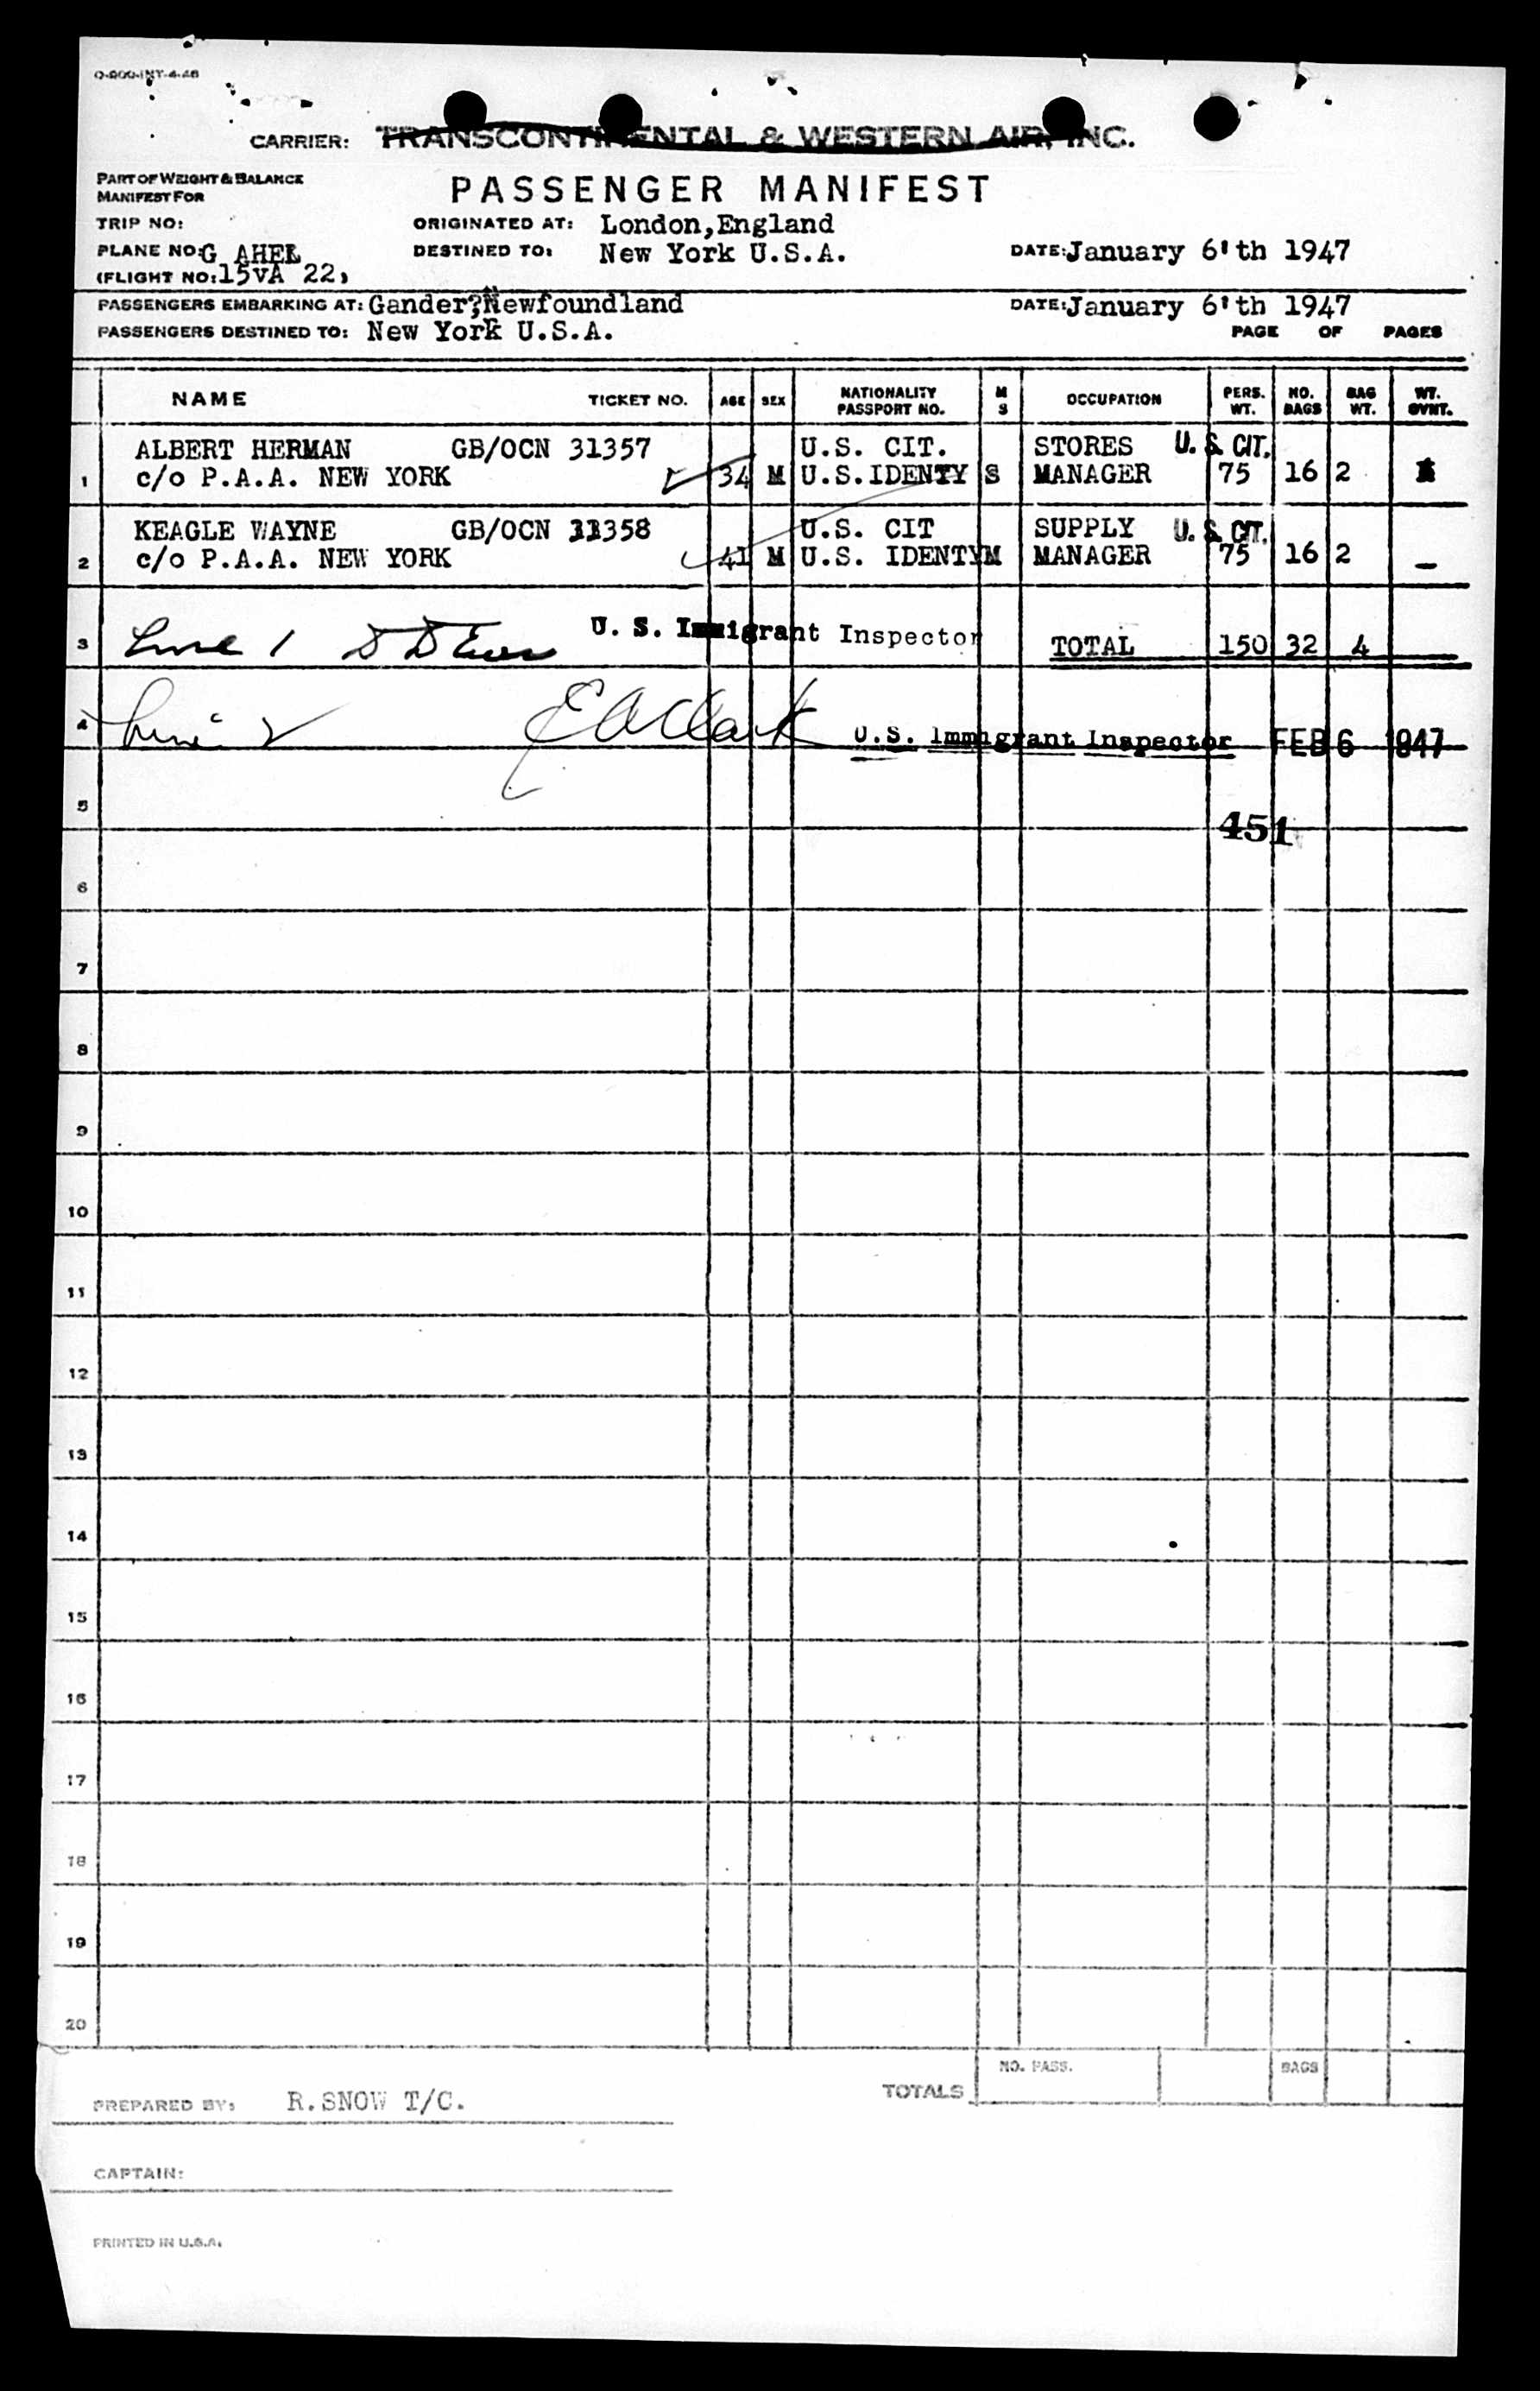 O-200-INT-4-46
CARRIER: TRANSCONTINENTAL & WESTERN AIR, INC.
PART OF WEIGHT & BALANCE
MANIFEST FOR
PASSENGER MANIFEST
TRIP NO:
ORIGINATED AT: London,England
PLANE NO: G AHEL
DESTINED TO: New York U.S.A.
DATE: January 6'th 1947
(FLIGHT NO: 15VA 22)
PASSENGERS EMBARKING AT: Gander?Newfoundland
DATE: January 6'th 1947
PASSENGERS DESTINED TO: New York U.S.A.
PAGE OF PAGES
NAME TICKET NO. AGE SEX NATIONALITY PASSPORT NO. M S OCCUPATION PERS. WT. NO. BAGS BAG WT. WT. OVNT.
ALBERT HERMAN GB/OCN 31357 U.S. CIT. STORES U.S CIT.
1 c/o P.A.A. NEW YORK 34 M U.S.IDENTY S MANAGER 75 16 2
KEAGLE WAYNE GB/OCN 31358 U.S. CIT SUPPLY U.S CIT.
2 c/o P.A.A. NEW YORK 41 M U.S. IDENTY M MANAGER 75 16 2 _
3 Line 1 U. S. Immigrant Inspector TOTAL 150 32 4
4 Line 2 E A Clark U.S. Immigrant Inspector FEB 6 1947
5
451
6
7
8
9
10
11
12
13
14
15
16
17
18
19
20
NO. PASS. BAGS
TOTALS
PREPARED BY: R.SNOW T/C.
CAPTAIN:
PRINTED IN U.S.A.